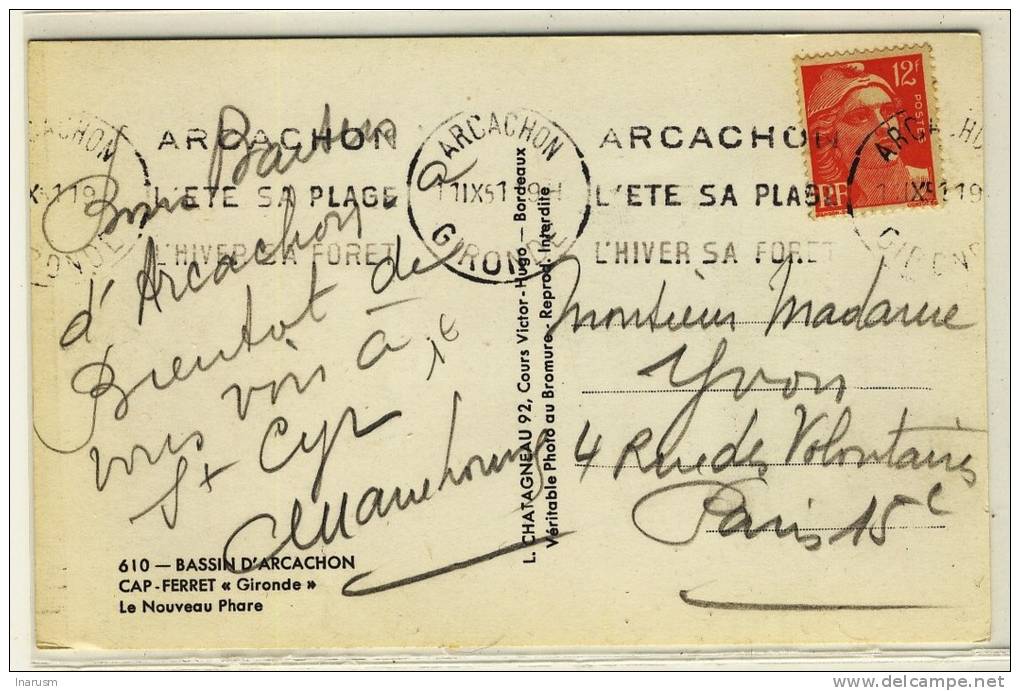 ARCACHON
L'ETE SA PLAGE
L'HIVER SA FORET
ARCACHON
1 IX 51
GIRONDE
ARCACHON
L'ETE SA PLAGE
L'HIVER SA FORET
12F
POSTES
RF
Bons Baisers
d'Arcachon a
Bientot de
vous voir à
St Cyr
1€
Monsieur Madame
Yvon
4 Rue des Volontaires
Paris 15e
L. CHATAGNEAU 92, Cours Victor-Hugo — Bordeaux
Véritable Photo au Bromure - Reprod. Interdite
610 — BASSIN D'ARCACHON
CAP-FERRET « Gironde »
Le Nouveau Phare
Inarusm
www.delcampe.net